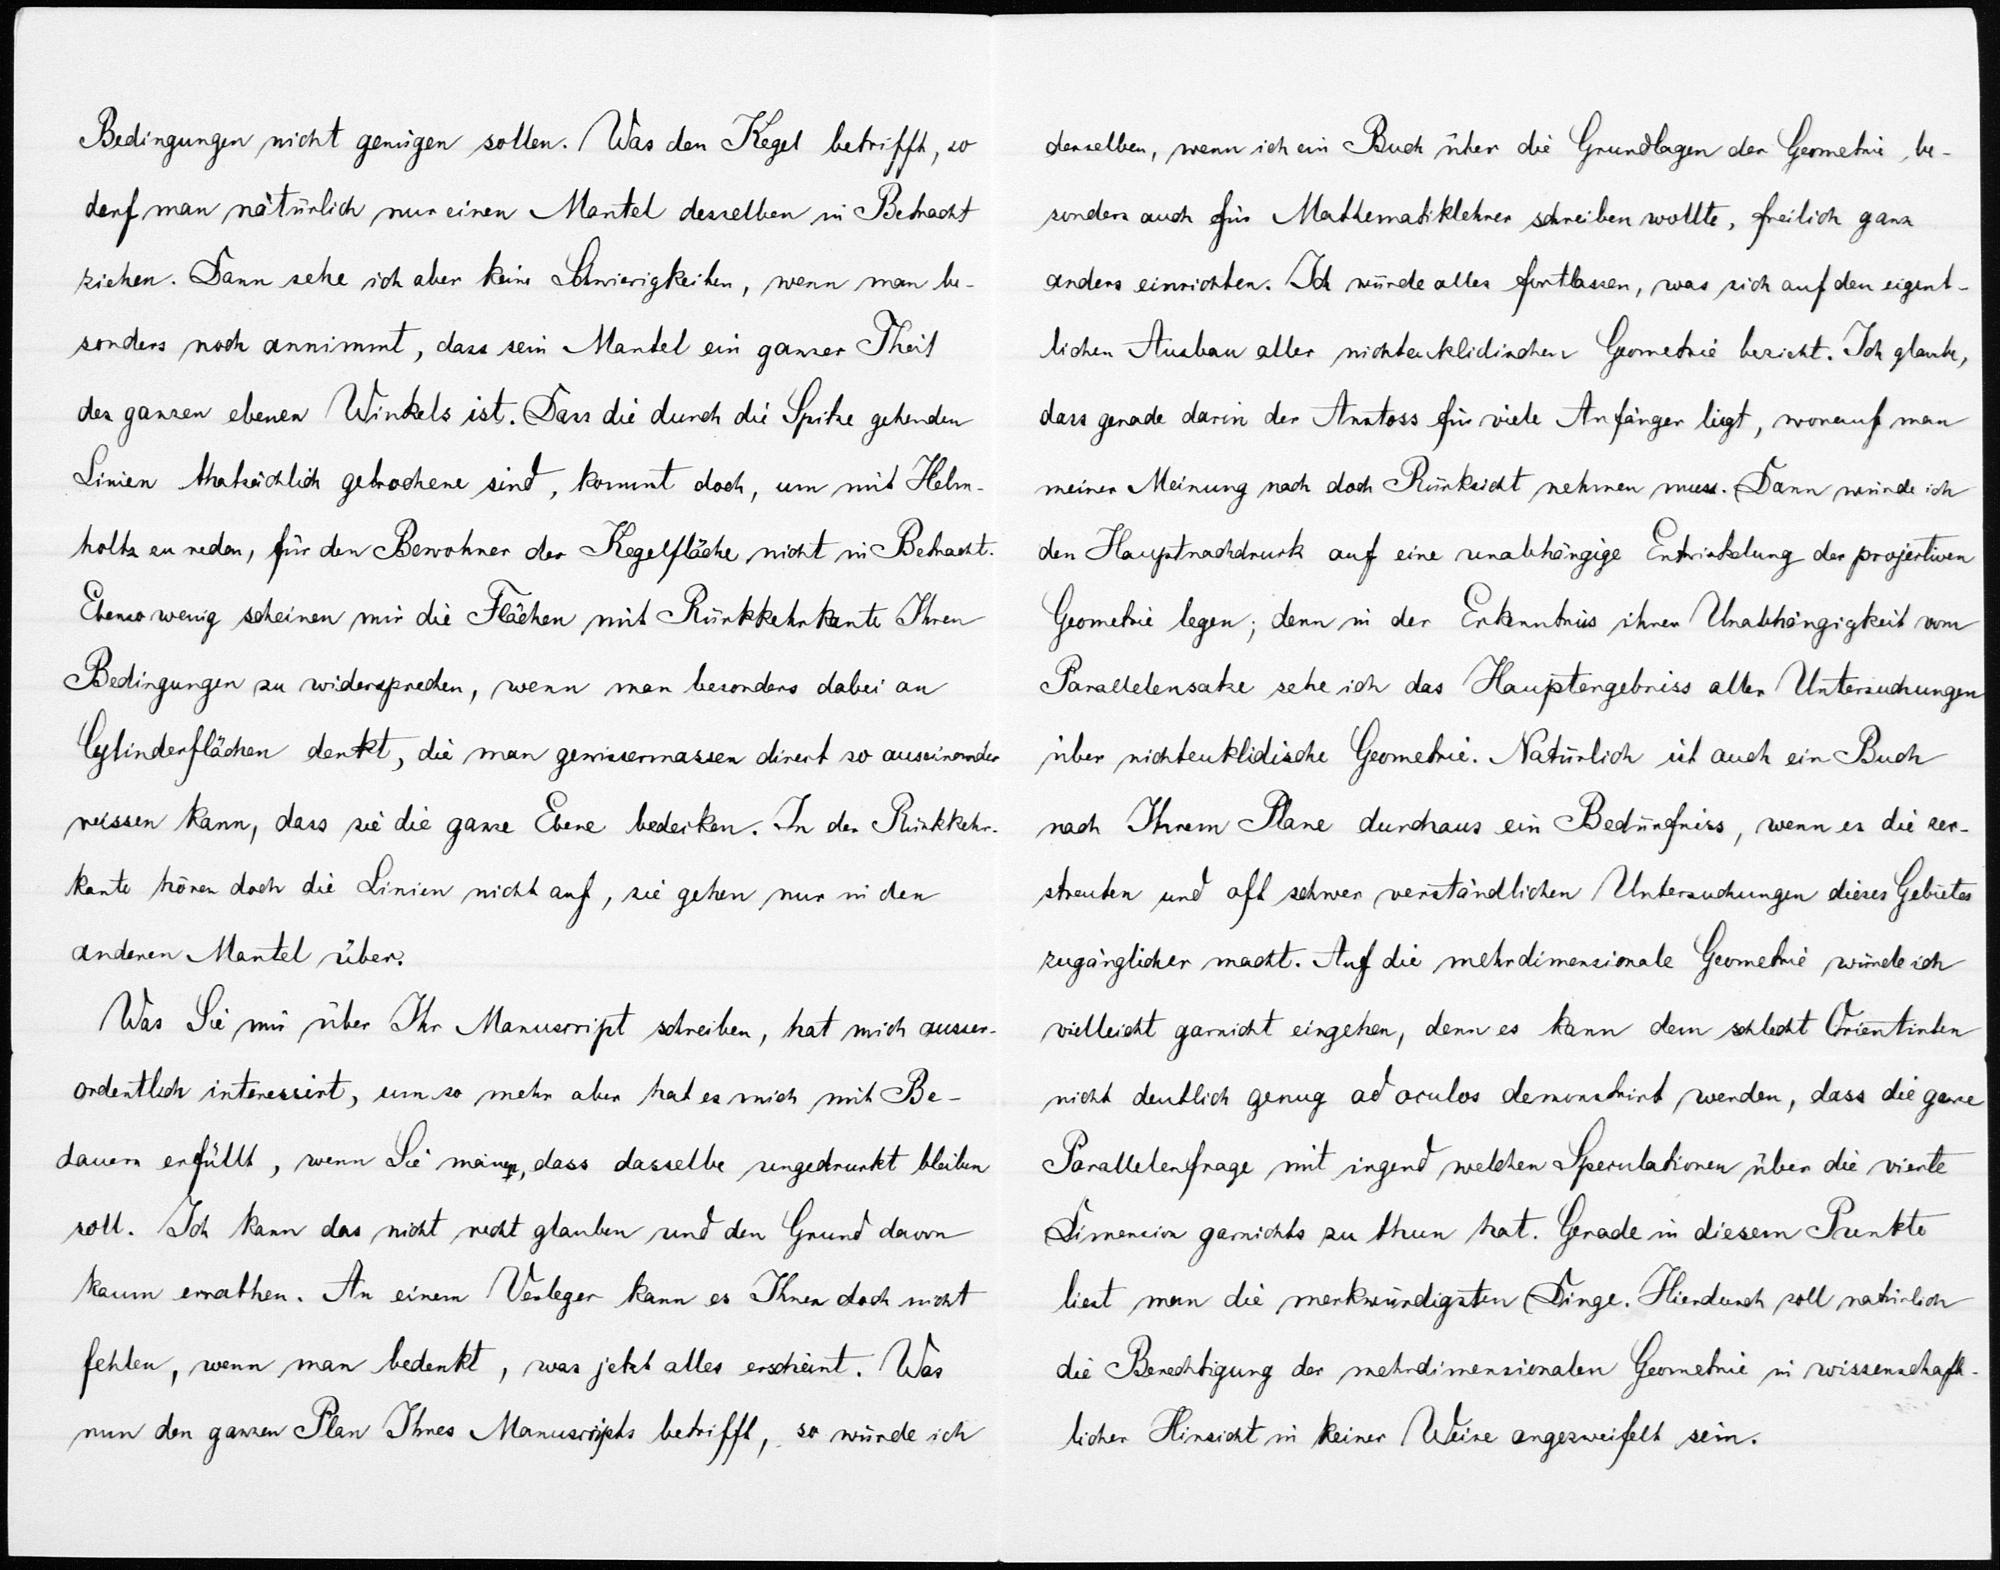 Bedingungen nicht genügen sollen. Was den Kegel betrifft, so
darf man natürlich nur einen Mantel desselben in Betracht
ziehen. Dann sehe ich aber keine Schwierigkeiten, wenn man be-
sonders noch annimmt, dass sein Mantel ein ganzer Theil
des ganzen ebenen Winkels ist. Dass die durch die Spitze gehenden
Linien thatsächlich gebrochene sind, kommt doch, um mit Helm-
holtz zu reden, für den Bewohner der Kegelfläche nicht in Betracht.
Ebenso wenig scheinen mir die Flächen mit Rückkehrkante Ihren
Bedingungen zu widersprechen, wenn man besonders dabei an
Cylinderflächen denkt, die man gewissermassen direct so auseinander
reissen kann, dass sie die ganze Ebene bedecken. In der Rückkehr-
kante hören doch die Linien nicht auf, sie gehen nur in den
anderen Mantel über.
Was Sie mir über Ihr Manuscript schreiben, hat mich ausser-
ordentlich interessirt, um so mehr aber hat es mich mit Be-
dauern erfüllt, wenn Sie meinen, dass dasselbe ungedruckt bleiben
soll. Ich kann das nicht recht glauben und den Grund davon
kaum errathen. An einem Verleger kann es Ihnen doch nicht
fehlen, wenn man bedenkt, was jetzt alles erscheint. Was
nun den ganzen Plan Ihres Manuscripts betrifft, so würde ich
denselben, wenn ich ein Buch über die Grundlagen der Geometrie, be-
sonders auch für Mathematiklehrer schreiben wollte, freilich ganz
anders einrichten. Ich würde alles fortlassen, was sich auf den eigent-
lichen Ausbau aller nichteuklidischen Geometrie bezieht. Ich glaube,
dass gerade darin der Anstoss für viele Anfänger liegt, worauf man
meiner Meinung nach doch Rücksicht nehmen muss. Dann würde ich
den Hauptnachdruck auf eine unabhängige Entwickelung der projectiven
Geometrie legen; denn in der Erkenntnis ihrer Unabhängigkeit vom
Parallelensatze sehe ich das Hauptergebniss aller Untersuchungen
über nichteuklidische Geometrie. Natürlich ist auch ein Buch
nach Ihrem Plane durchaus ein Bedürfniss, wenn es die zer-
streuten und oft schwer verständlichen Untersuchungen dieses Gebietes
zugänglicher macht. Auf die mehrdimensionale Geometrie würde ich
vielleicht garnicht eingehen, denn es kann dem schlecht Orientirten
nicht deutlich genug ad oculos demonstrirt werden, dass die ganze
Parallelenfrage mit irgend welchen Speculationen über die vierte
Dimension garnichts zu thun hat. Gerade in diesem Punkte
liest man die merkwürdigsten Dinge. Hierdurch soll natürlich
die Berechtigung der mehrdimensionalen Geometrie in wissenschaft-
licher Hinsicht in keiner Weise angezweifelt sein.